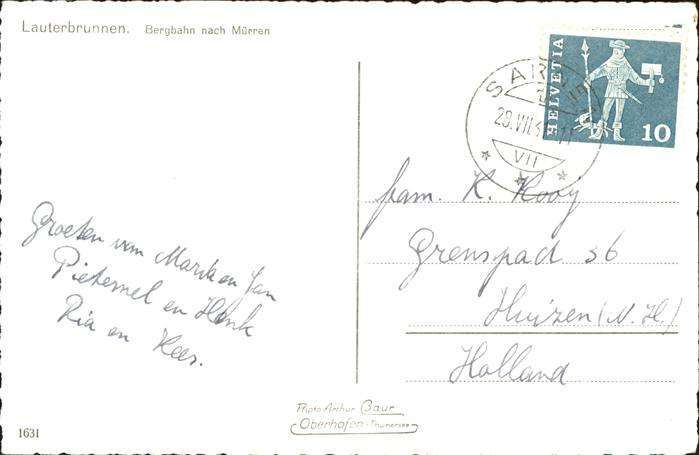 Lauterbrunnen. Bergbahn nach Mürren
HELVETIA
10
SARN
28.VII.
VII
Groeten van Mark en Jan
Pieternel en Henk
Ria en Kees.
fam. K. Kooy
Grenspad 36
Huizen (N.H.)
Holland
Photo Arthur Baur
Oberhofen-Thunersee
1631